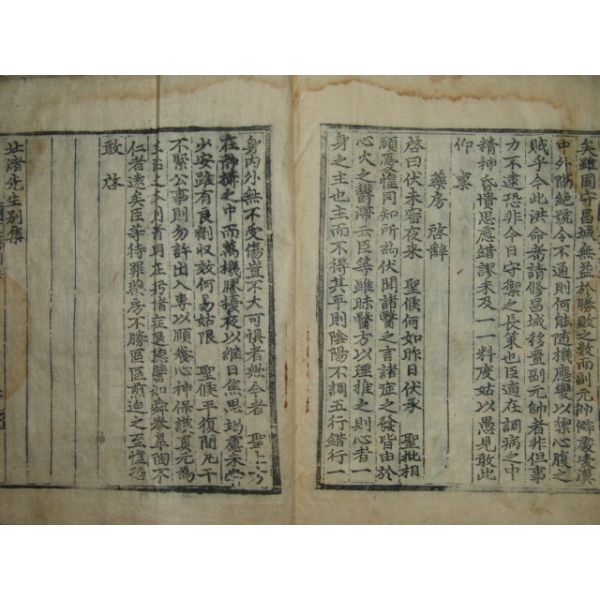 矣雖國守昌城無益於勝敗之數而副元帥僻處凄漠
中外隔絶號令不通則何能隨機應變以禦心腹之
賊乎今此洪命耉請修昌城移置副元帥者非但事
力不逮恐非今日守禦之長策也臣適在調病之中
精神昏憒思慮錯謬未及一一料度姑以愚見敢此
仰稟
藥房 啓辭
啓曰伏未審夜來 聖候何如昨日伏承 聖批相
顧憂惶罔知所爲伏聞諸醫之言諸症之發皆由於
心火之鬱滯云臣等雖昧醫方以理推之則心者一
身之主也主而不得其平則陰陽不調五行錯行一
身內外無不受傷豈不大可懼者哉今者 聖上
在靜攝之中而萬機勝擾夜以繼日焦思竭慮未嘗
少安雖有良劑収效何易姑限 聖候平復間凡干
不緊公事則勿許出入專以順養心神保護眞元爲
仁者遠矣臣等待罪藥房不勝區區前迫之至惶恐
敢 啓
北渚先生別集